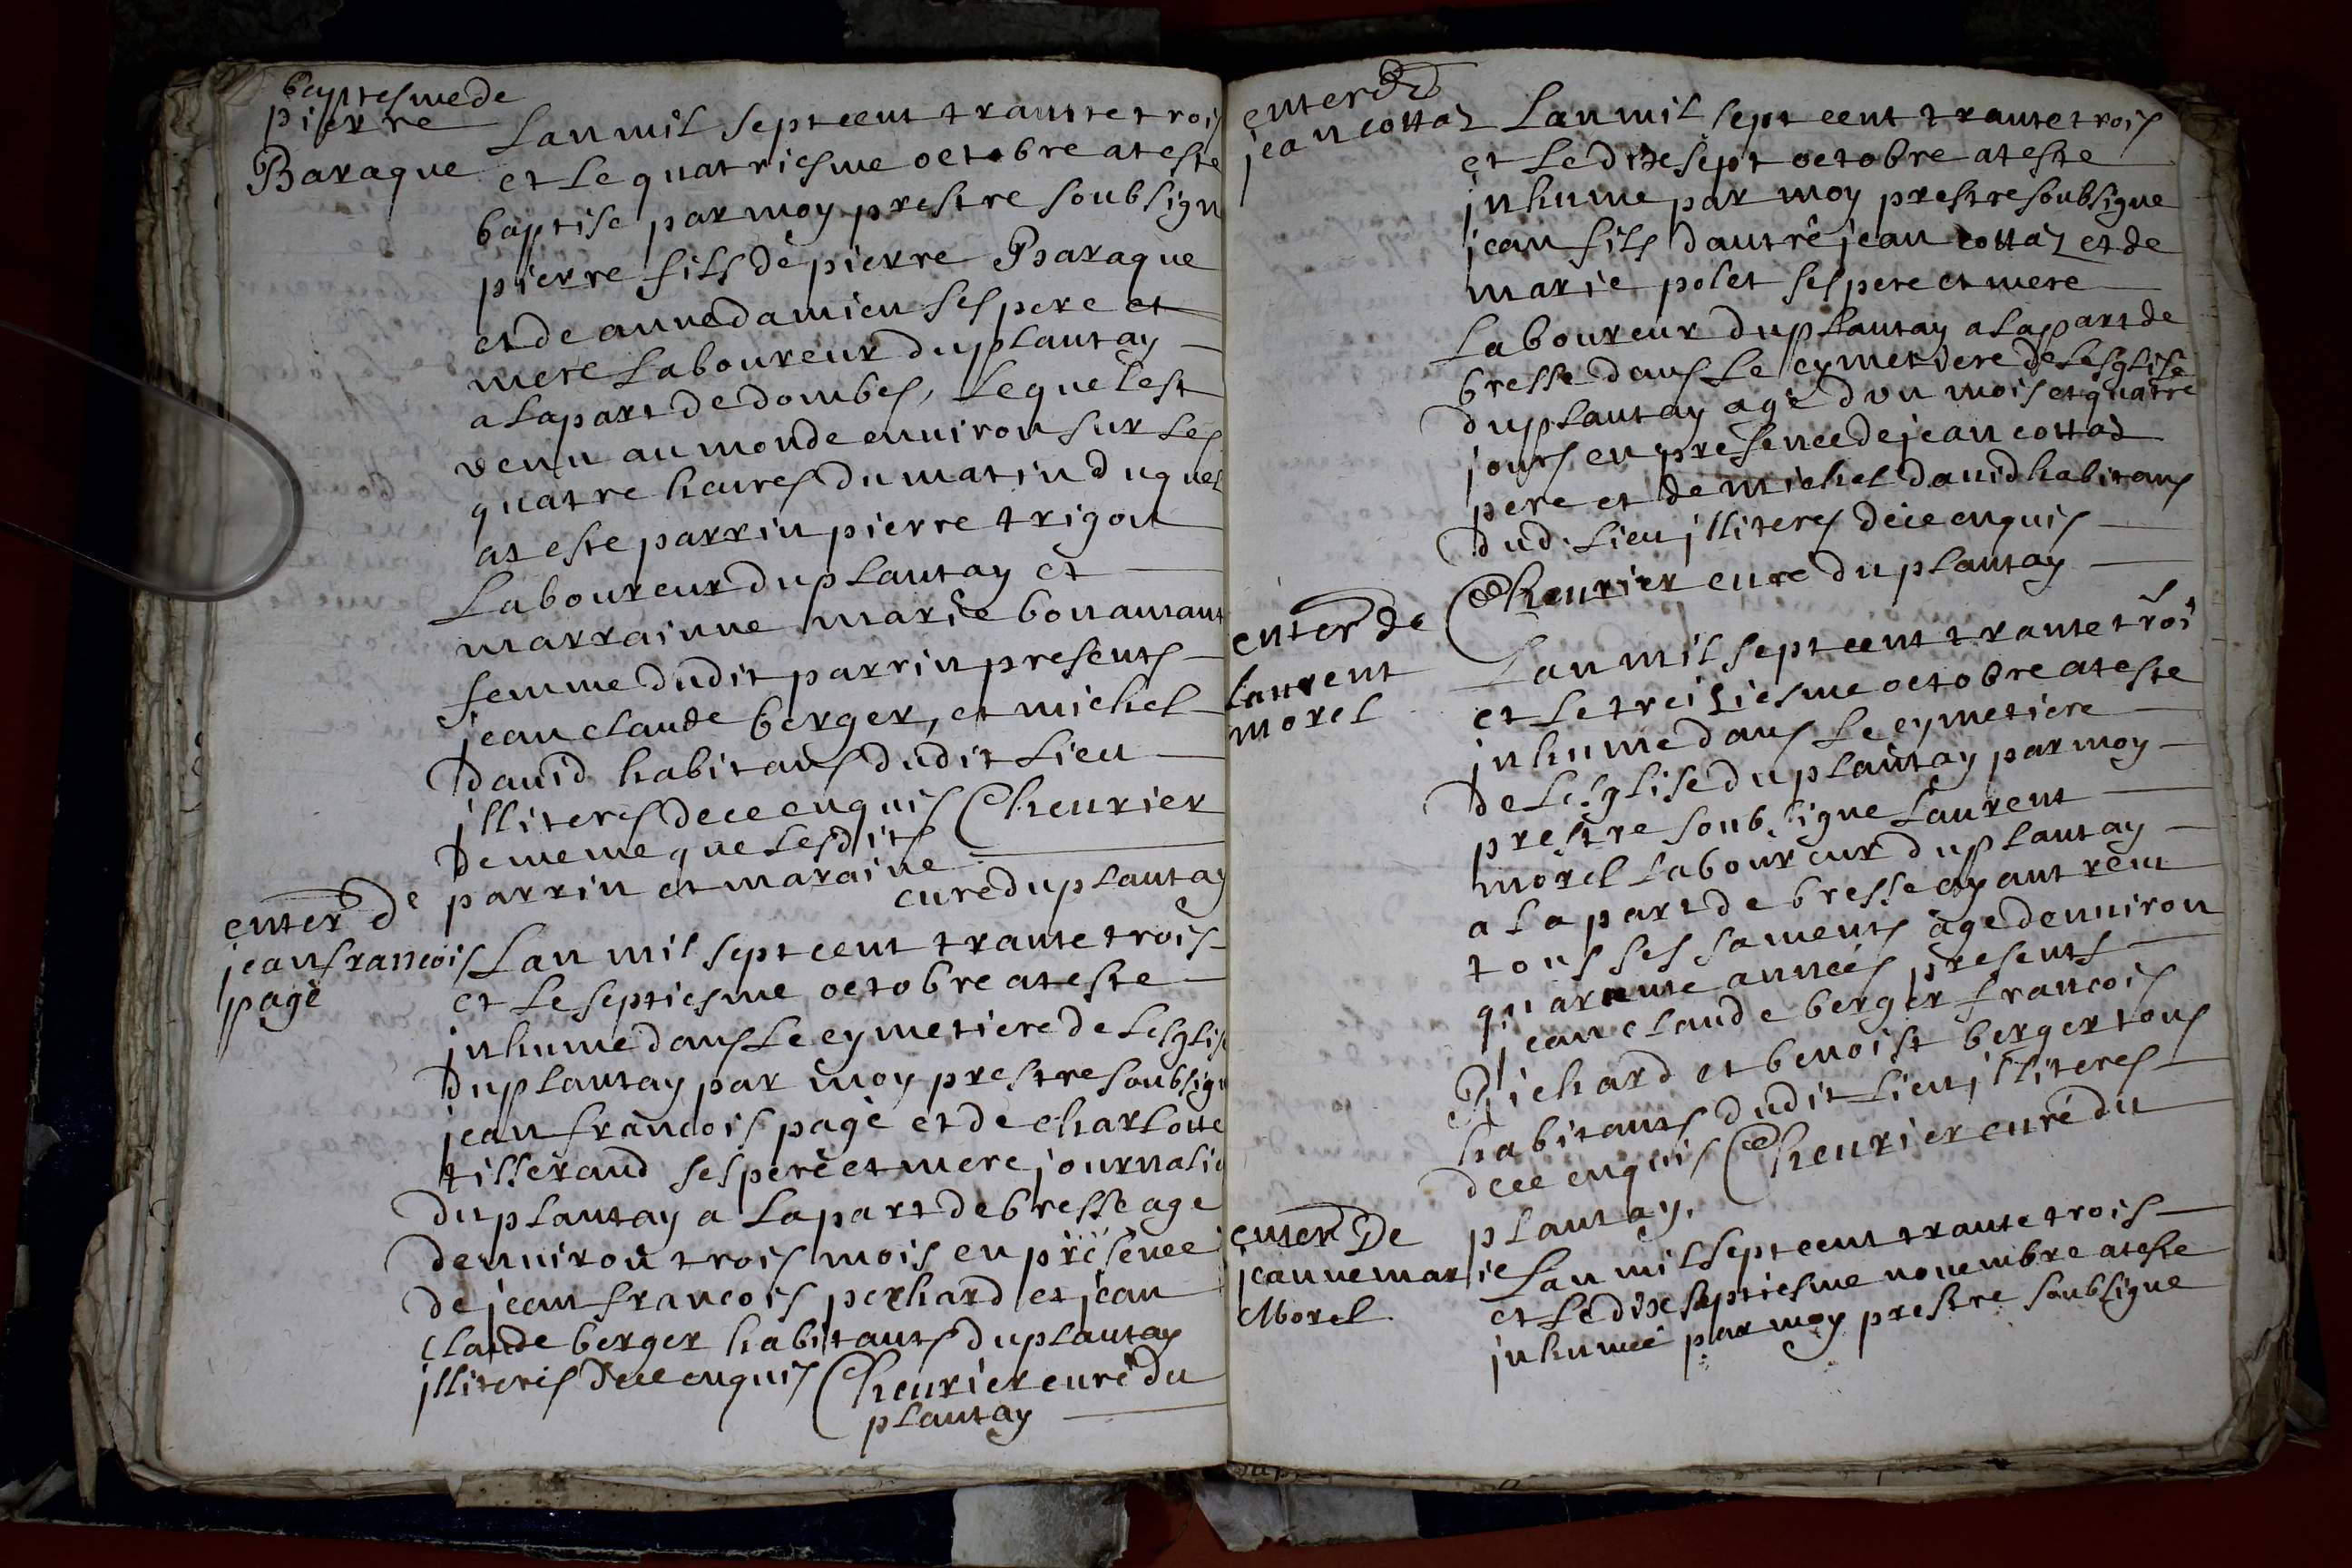 baptesme de
pierre
Baraque
Lan mil sept cent trante trois
et le quatriesme octobre at este
baptise par moy prestre soubsign
pierre fils de pierre Baraque
et de anne damien ses pere et
mere laboureur du plantay
a la part de dombes, lequel est
venu au monde enuiron sur les
quatre heures du matin duquel
at este parrin pierre trigon
laboureur du plantay et
marrainne marie bonamant
femme dudit parrin presents
jean claude berger, et michel
dauid habitans dudit lieu
jlliteres de ce enquis Cheurier
de meme que lesdits
parrin et maraine
curé du plantay
enter de
jean francois
page
Lan mil sept cent trante trois
et le septiesme octobre at este
jnhumé dans le cymetiere de lesglis
du plantay par moy prestre soubsign
jean francois pagé et de charlotte
tisseraud ses pere et mere journalie
du plantay a la part de bresse age
denuiron trois mois en présence
de jean francois perhard et jean
claude berger habitants du plantay
jlliterés de ce enquis Cheurier curé du
plantay
enter de
jean cottaz
Lan mil sept cent trante trois
et le dixsept octobre at este
jnhume par moy prestre soubsigne
jean fils dautre jean cottaz et de
marie polet ses pere et mere
laboureur du plantay a la part de
bresse dans le cymetiere de lesglise
du plantay agé dun mois et quatre
jours en presence de jean cottaz
pere et de michel dauid habitans
dud. lieu jlliteres de ce enquis
Cheurier curé du plantay
enter de
laurent
morel
Lan mil sept cent trante troi
et le treiziesme octobre at este
jnhumé dans le cymetiere
de lesglise du plantay par moy
prestre soubsigne laurent
morel laboureur du plantay
a la part de bresse ayant reçu
tous ses saments âgé denuiron
quarante années presents
jean claude berger francois
Richard et benoist berger tous
habitants dudit lieu jlliteres
de ce enquis Cheurier curé du
plantay.
enter De
jeanne marie
Morel
Lan mil sept cent trante trois
et le dixseptiesme nouembre at este
jnhumée par moy prestre soubsigne